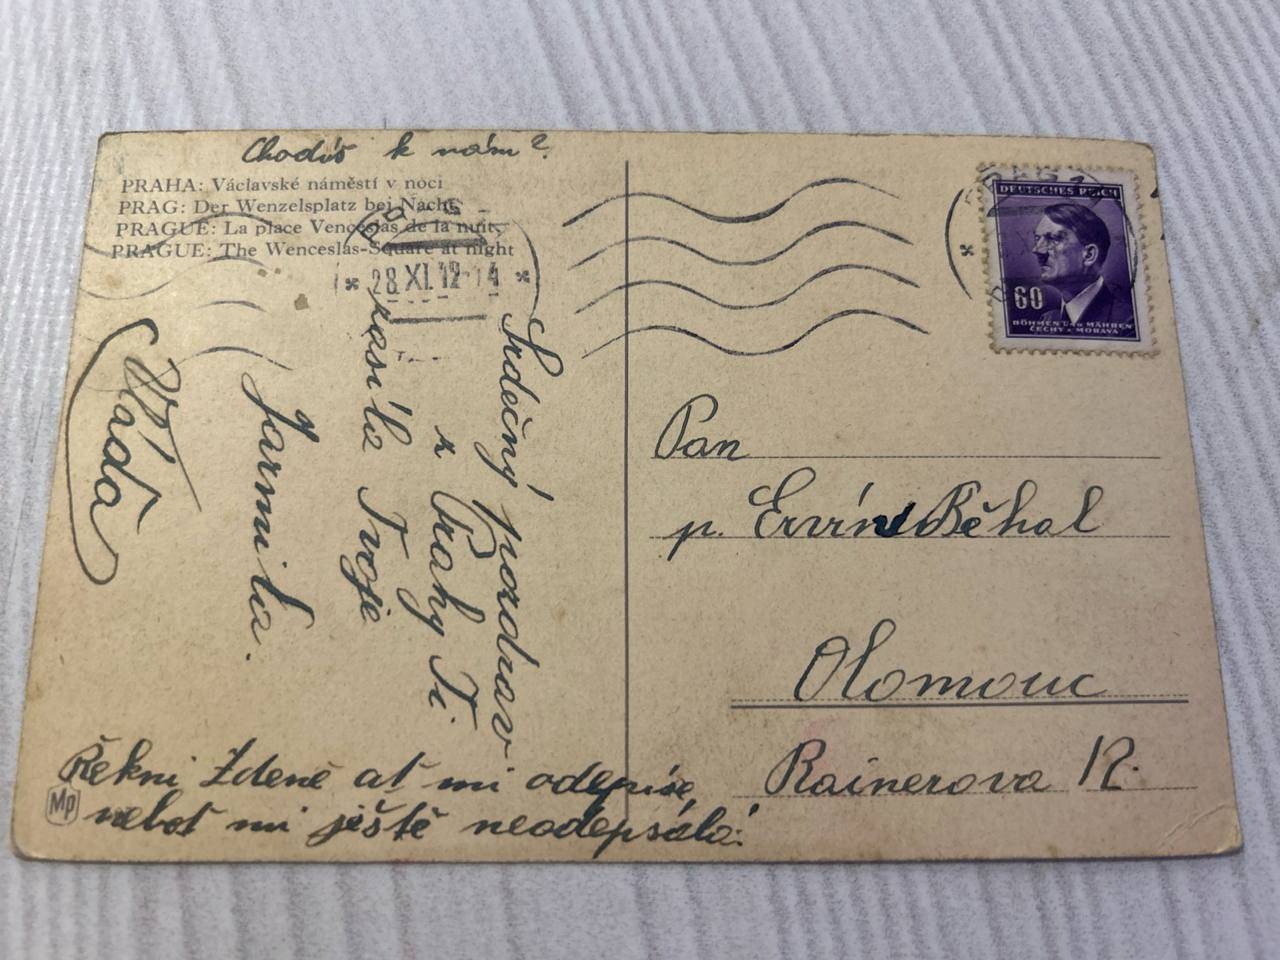 Chodíš k nám?
PRAHA: Václavské náměstí v noci
PRAG: Der Wenzelsplatz bei Nacht
PRAGUE: La place Venceslas de la nuit
PRAGUE: The Wenceslas-Square at night
* 28.XI.12-14 *
DEUTSCHES REICH
60
BÖHMEN UND MÄHREN
ČECHY A MORAVA
Srdečný pozdrav
z Prahy Ti
zasílá Tvoje
Jarmila.
Vláďa
Pan
p. Ervín Běhal
Olomouc
Rainerova 12.
Řekni Zdeně ať mi odepíše
neboť mi ještě neodepsala.
Mp